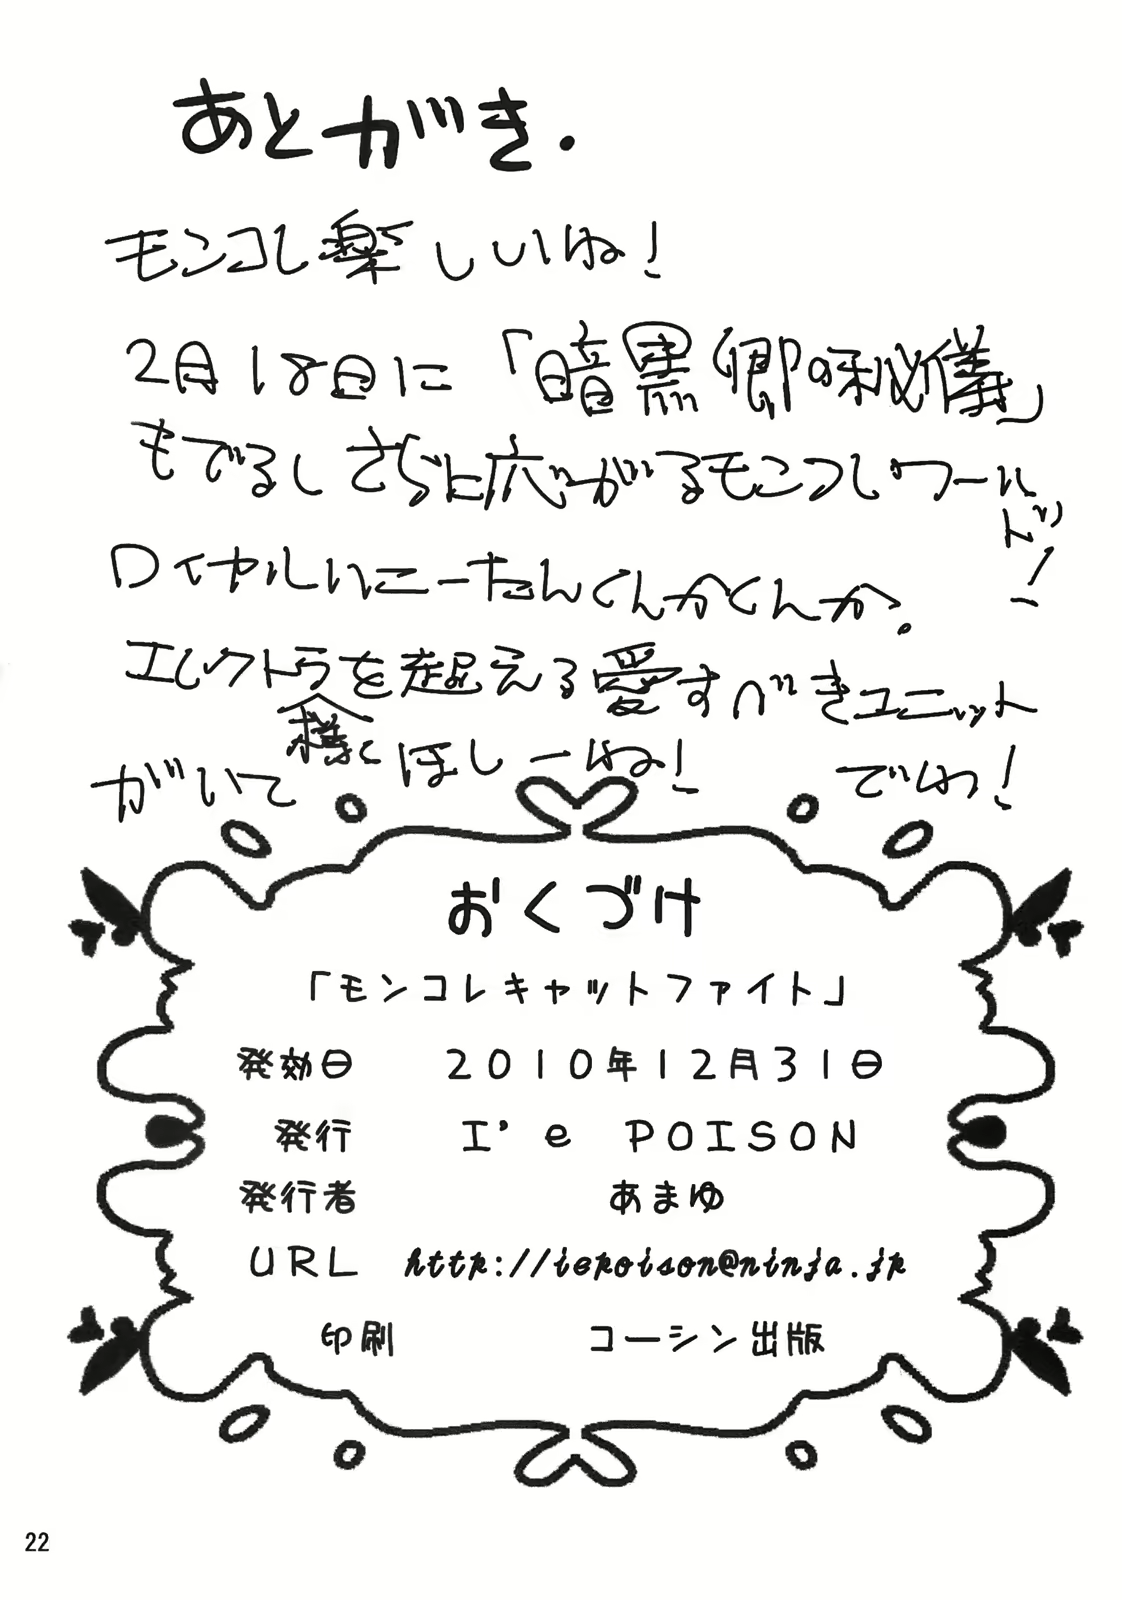 あとがき.
モンコレ楽しいね!
2月18日に「暗黒卿の秘儀」
もでるし さらに広がるモンコレワールド!
ロイヤルいこーたんくんかくんか。
エレクトラ様を超える愛すべきユニット
がいてほしーね! でわ!
おくづけ
「モンコレキャットファイト」
発効日 2010年12月31日
発行 I'e POISON
発行者 あまゆ
URL http://iepoison@ninja.jp
印刷 コーシン出版
22